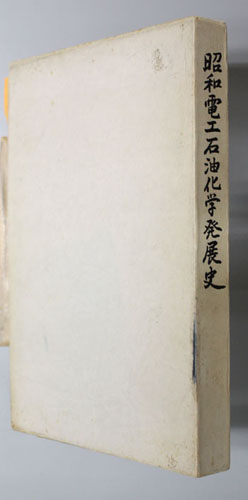 昭和電工石油化学発展史